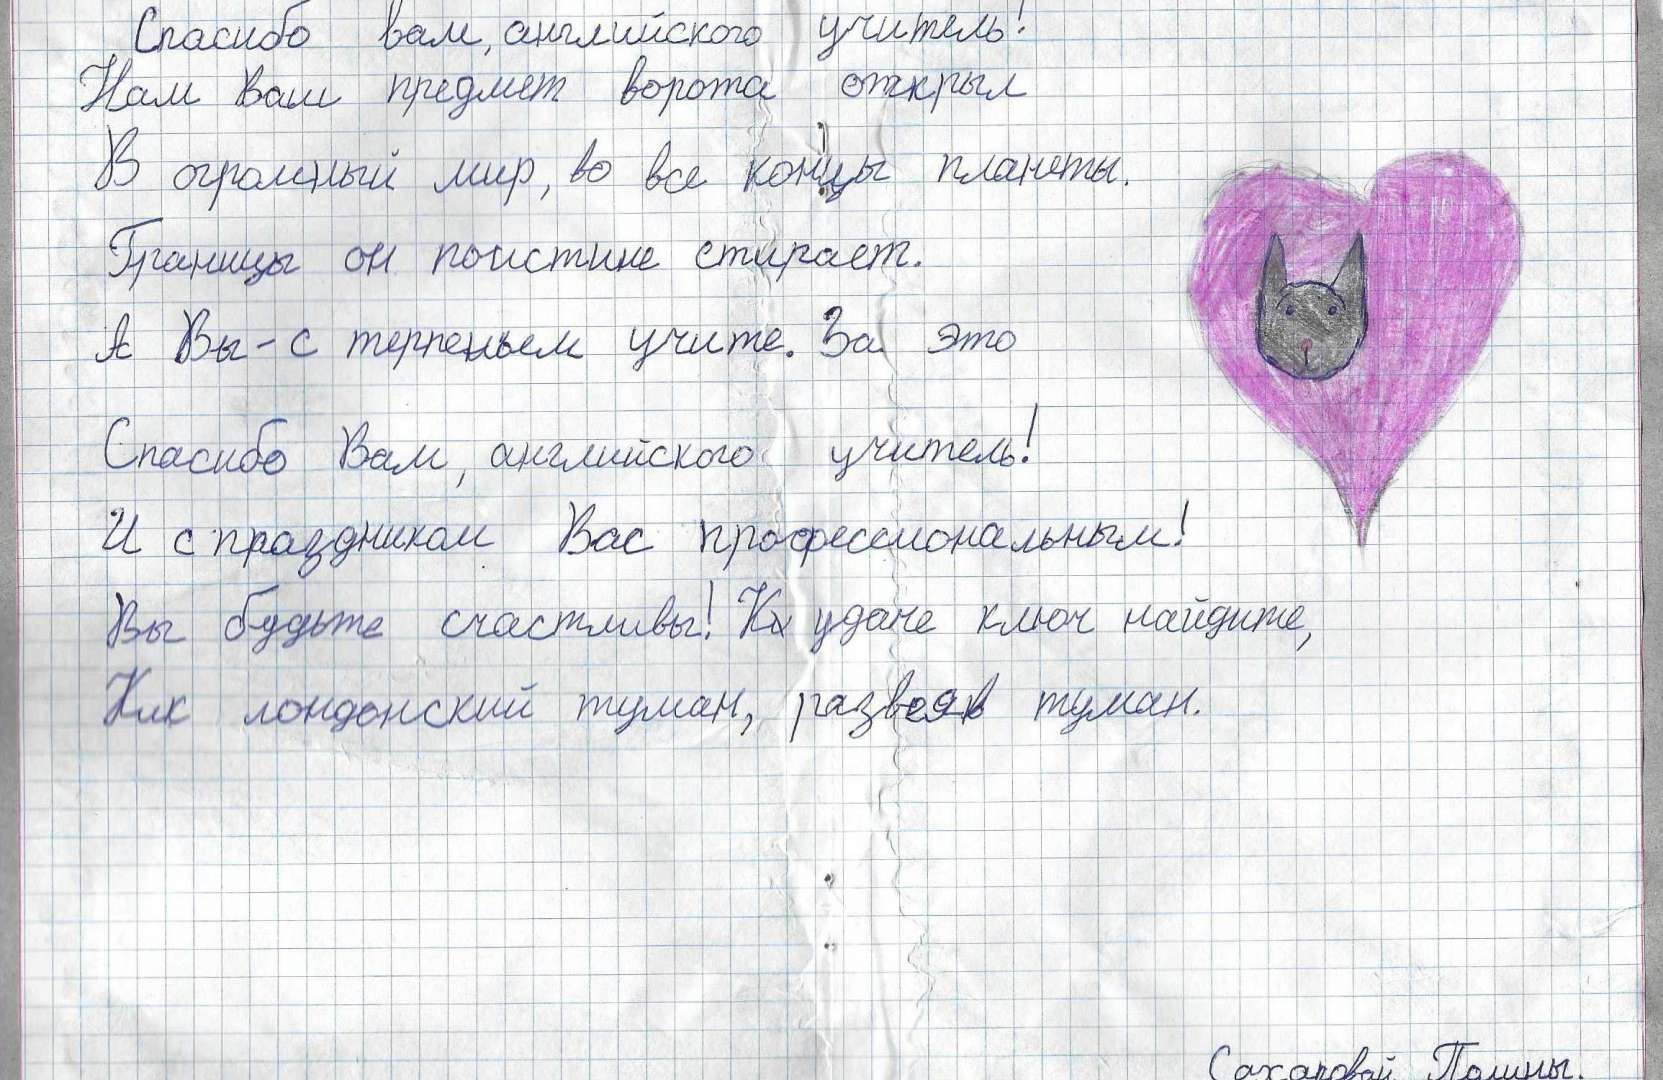 Спасибо вам, английского учитель!
Нам Ваш предмет ворота открыл
В огромный мир, во все концы планеты.
Границы он поистине стирает.
А Вы - с терпеньем учите. За это
Спасибо Вам, английского учитель!
И с праздником Вас профессиональным!
Вы будьте счастливы! К удаче ключ найдите,
Как лондонский туман, развеяв туман.
Сахаровой Полины.